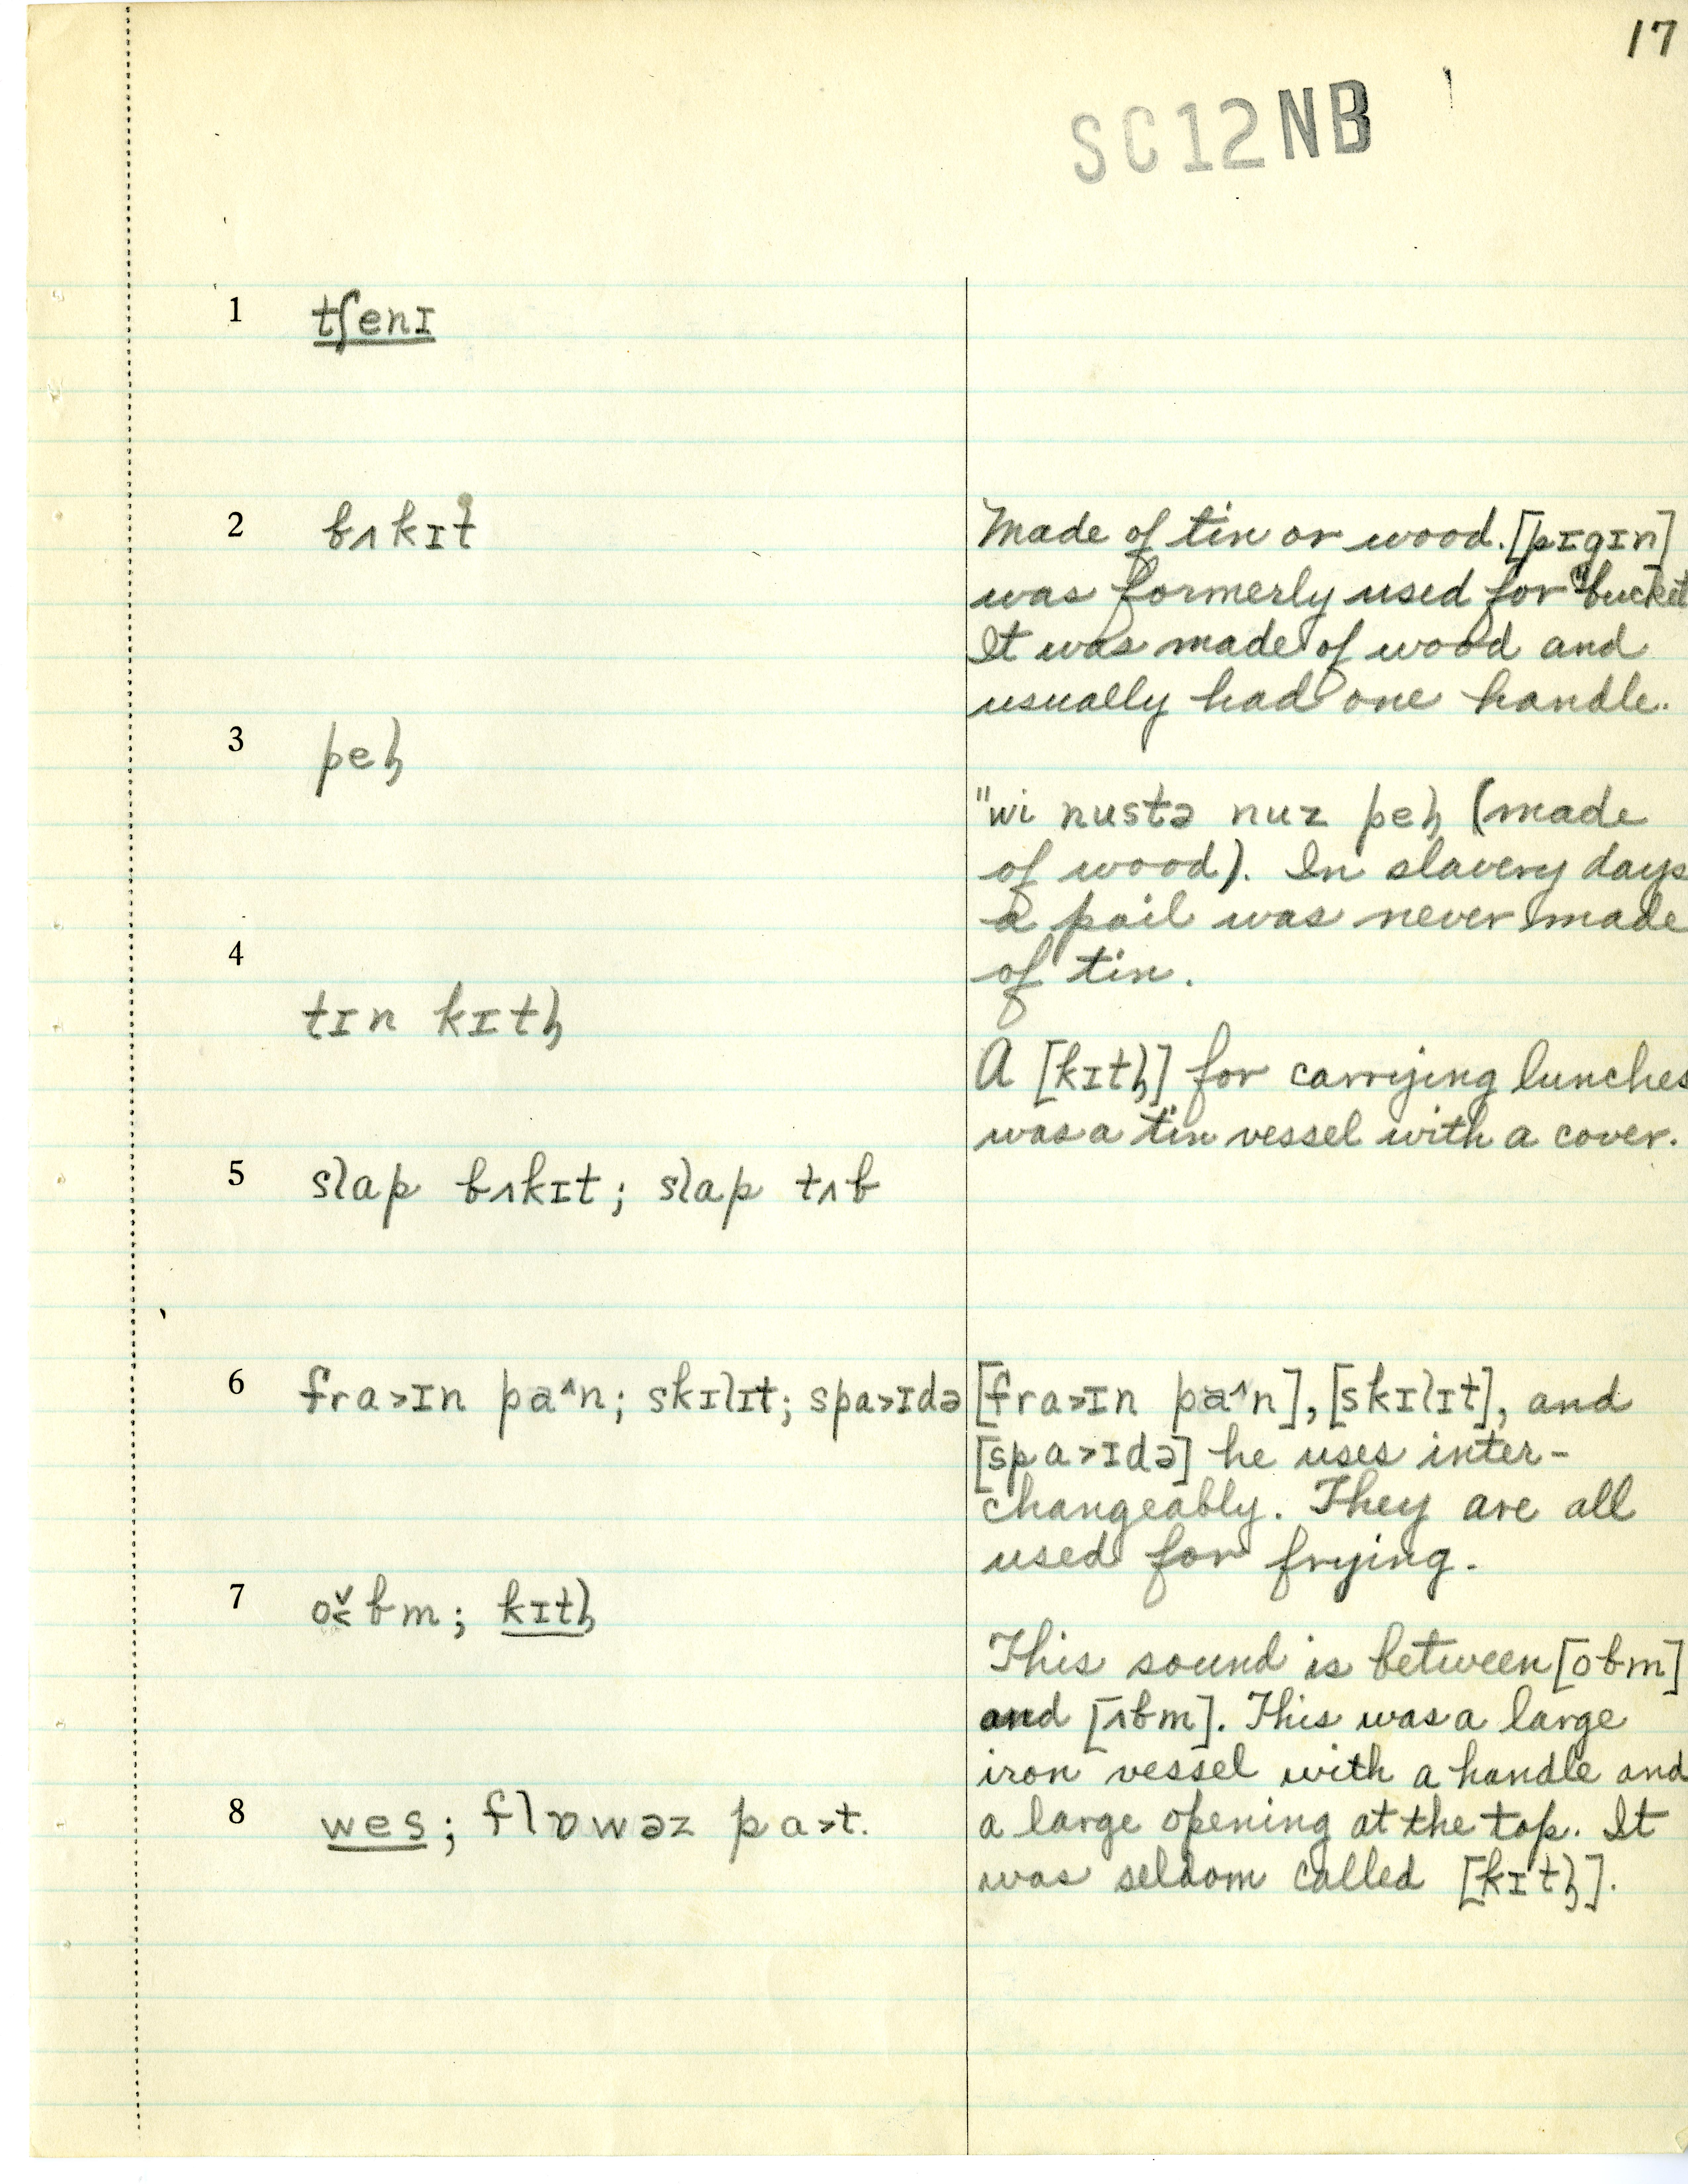 17
SC12NB
1 tʃenɪ
2 bʌkɪt
Made of tin or wood. [pɪgɪn]
was formerly used for "bucket
It was made of wood and
usually had one handle.
3 peɫ̩
"wi nustə nuz peɫ̩ (made
of wood). In slavery days
a pail was never made
of tin.
4 tɪn kɪtl̩
A [kɪtl̩] for carrying lunches
was a tin vessel with a cover.
5 slap bʌkɪt; slap tʌb
6 fra˃ɪn pa^n; skɪlɪt; spa˃ɪdə
[fra˃ɪn pa^n], [skɪlɪt], and
[spa˃ɪdə] he uses inter-
changeably. They are all
used for frying.
7 o˂̌bm; kɪtl̩
This sound is between [obm]
and [ʌbm]. This was a large
iron vessel with a handle and
a large opening at the top. It
was seldom called [kɪtl̩].
8 wes; flɒwəz pa˃t.